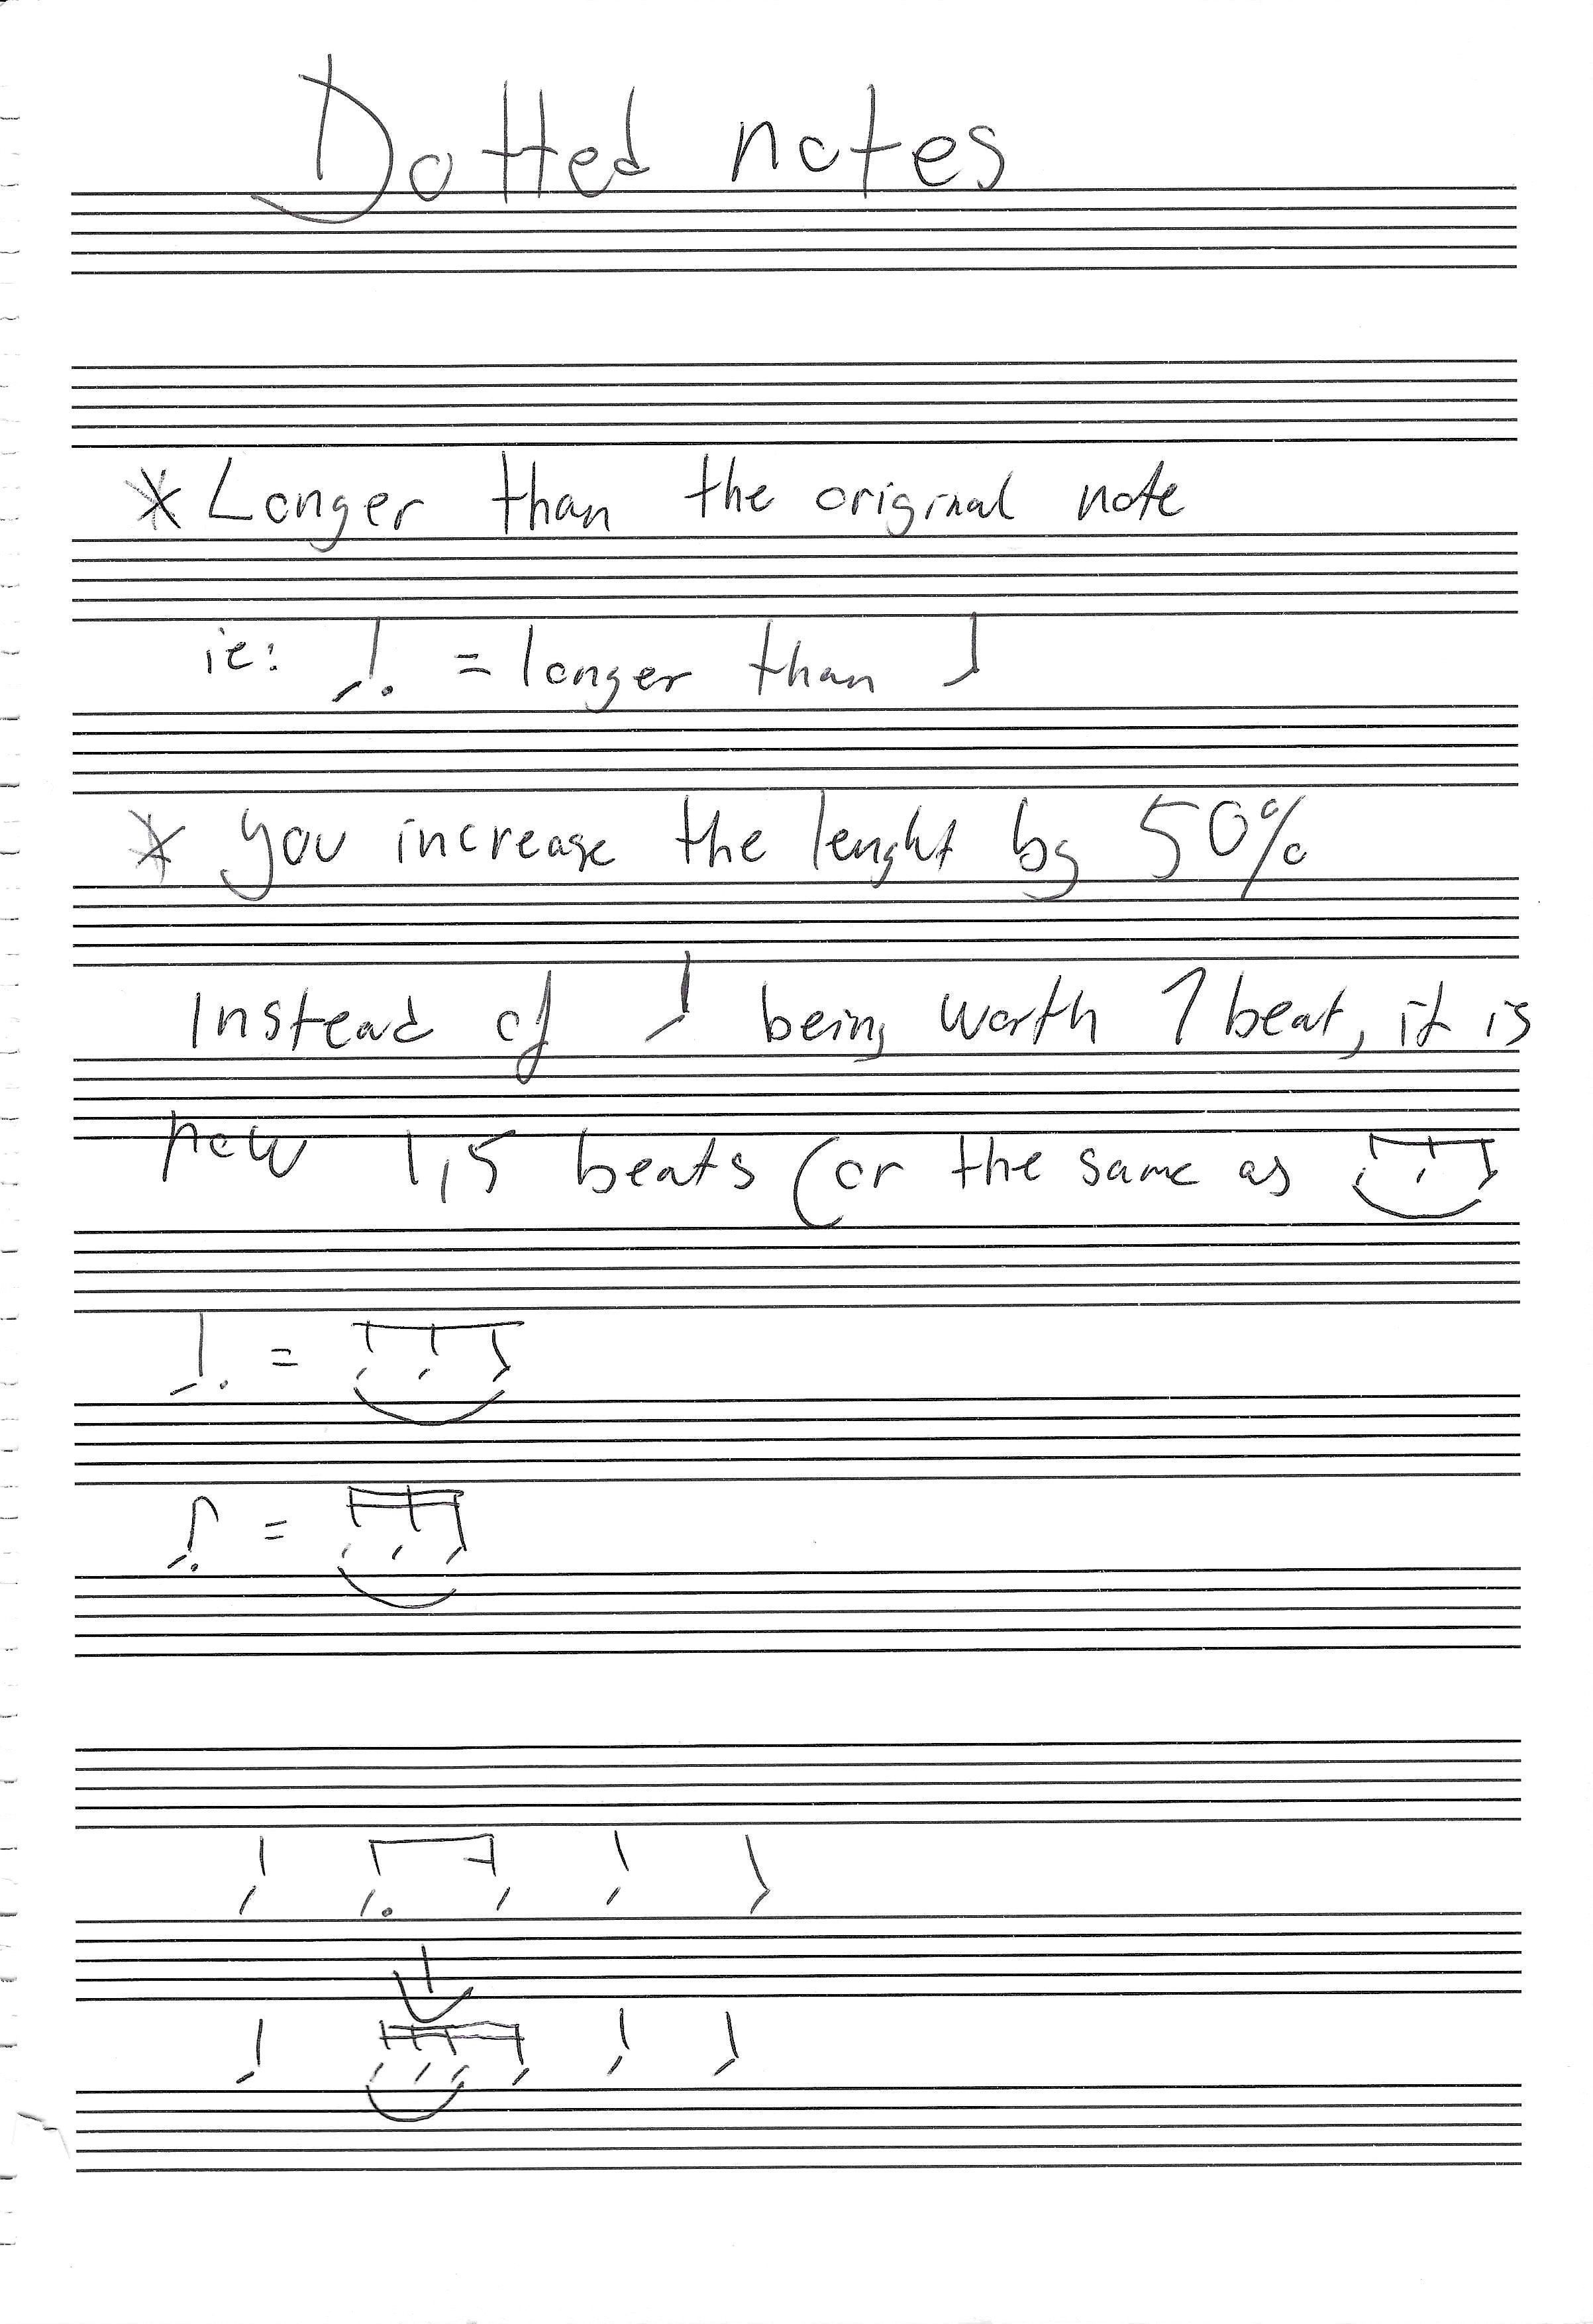 Dotted notes
* Longer than the original note
ie: ♩. = longer than ♩
* you increase the lenght by 50%
Instead of ♩ being worth 1 beat, it is
now 1,5 beats (or the same as ♫
♩. =
♪. =